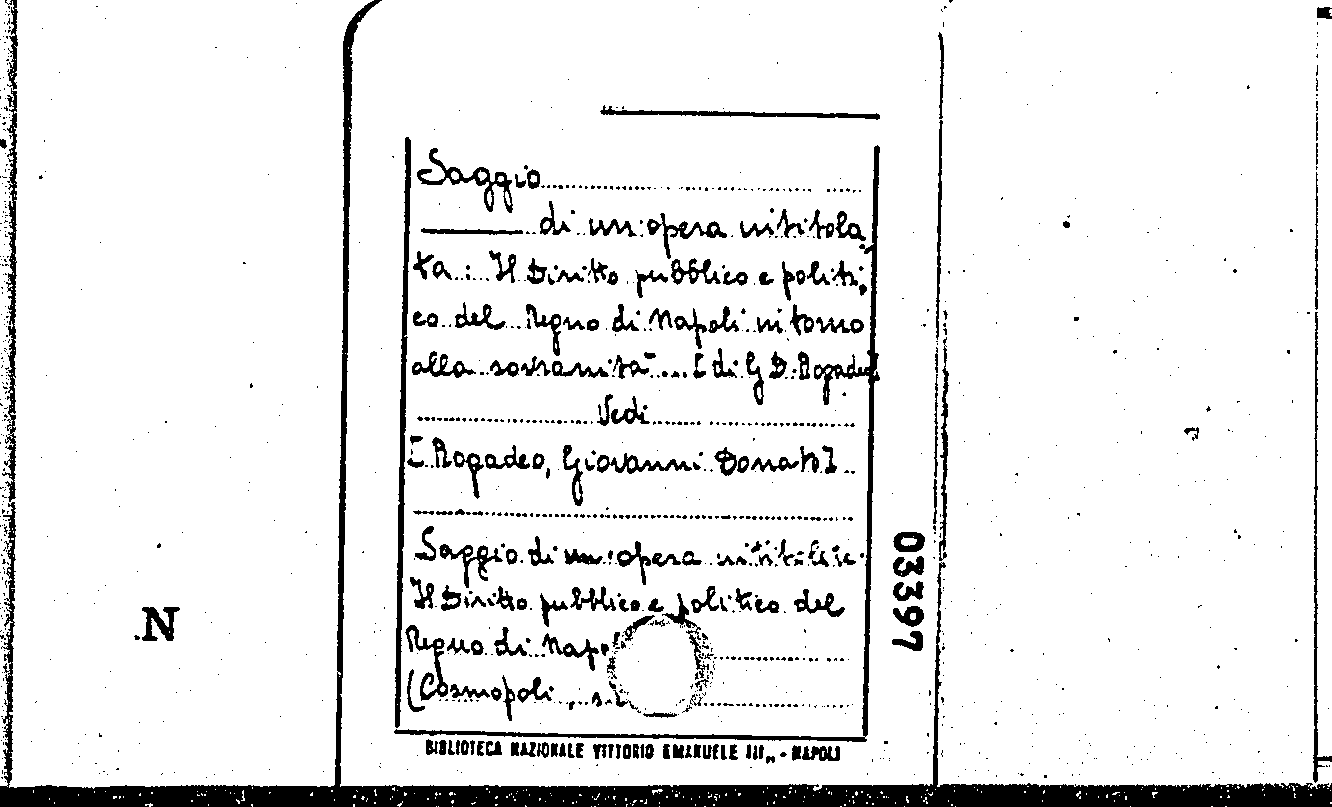 Saggio
di un'opera intitola
ta: Il Diritto pubblico e politi
co del Regno di Napoli intorno
alla sovranità ... [di G D. Rogadeo]
Vedi
[Rogadeo, Giovanni Donato]
Saggio di un'opera
Il Diritto pubblico e politico del
Regno di
(Cosmopoli,
BIBLIOTECA NAZIONALE VITTORIO EMANUELE III„ - NAPOLI
03397
N